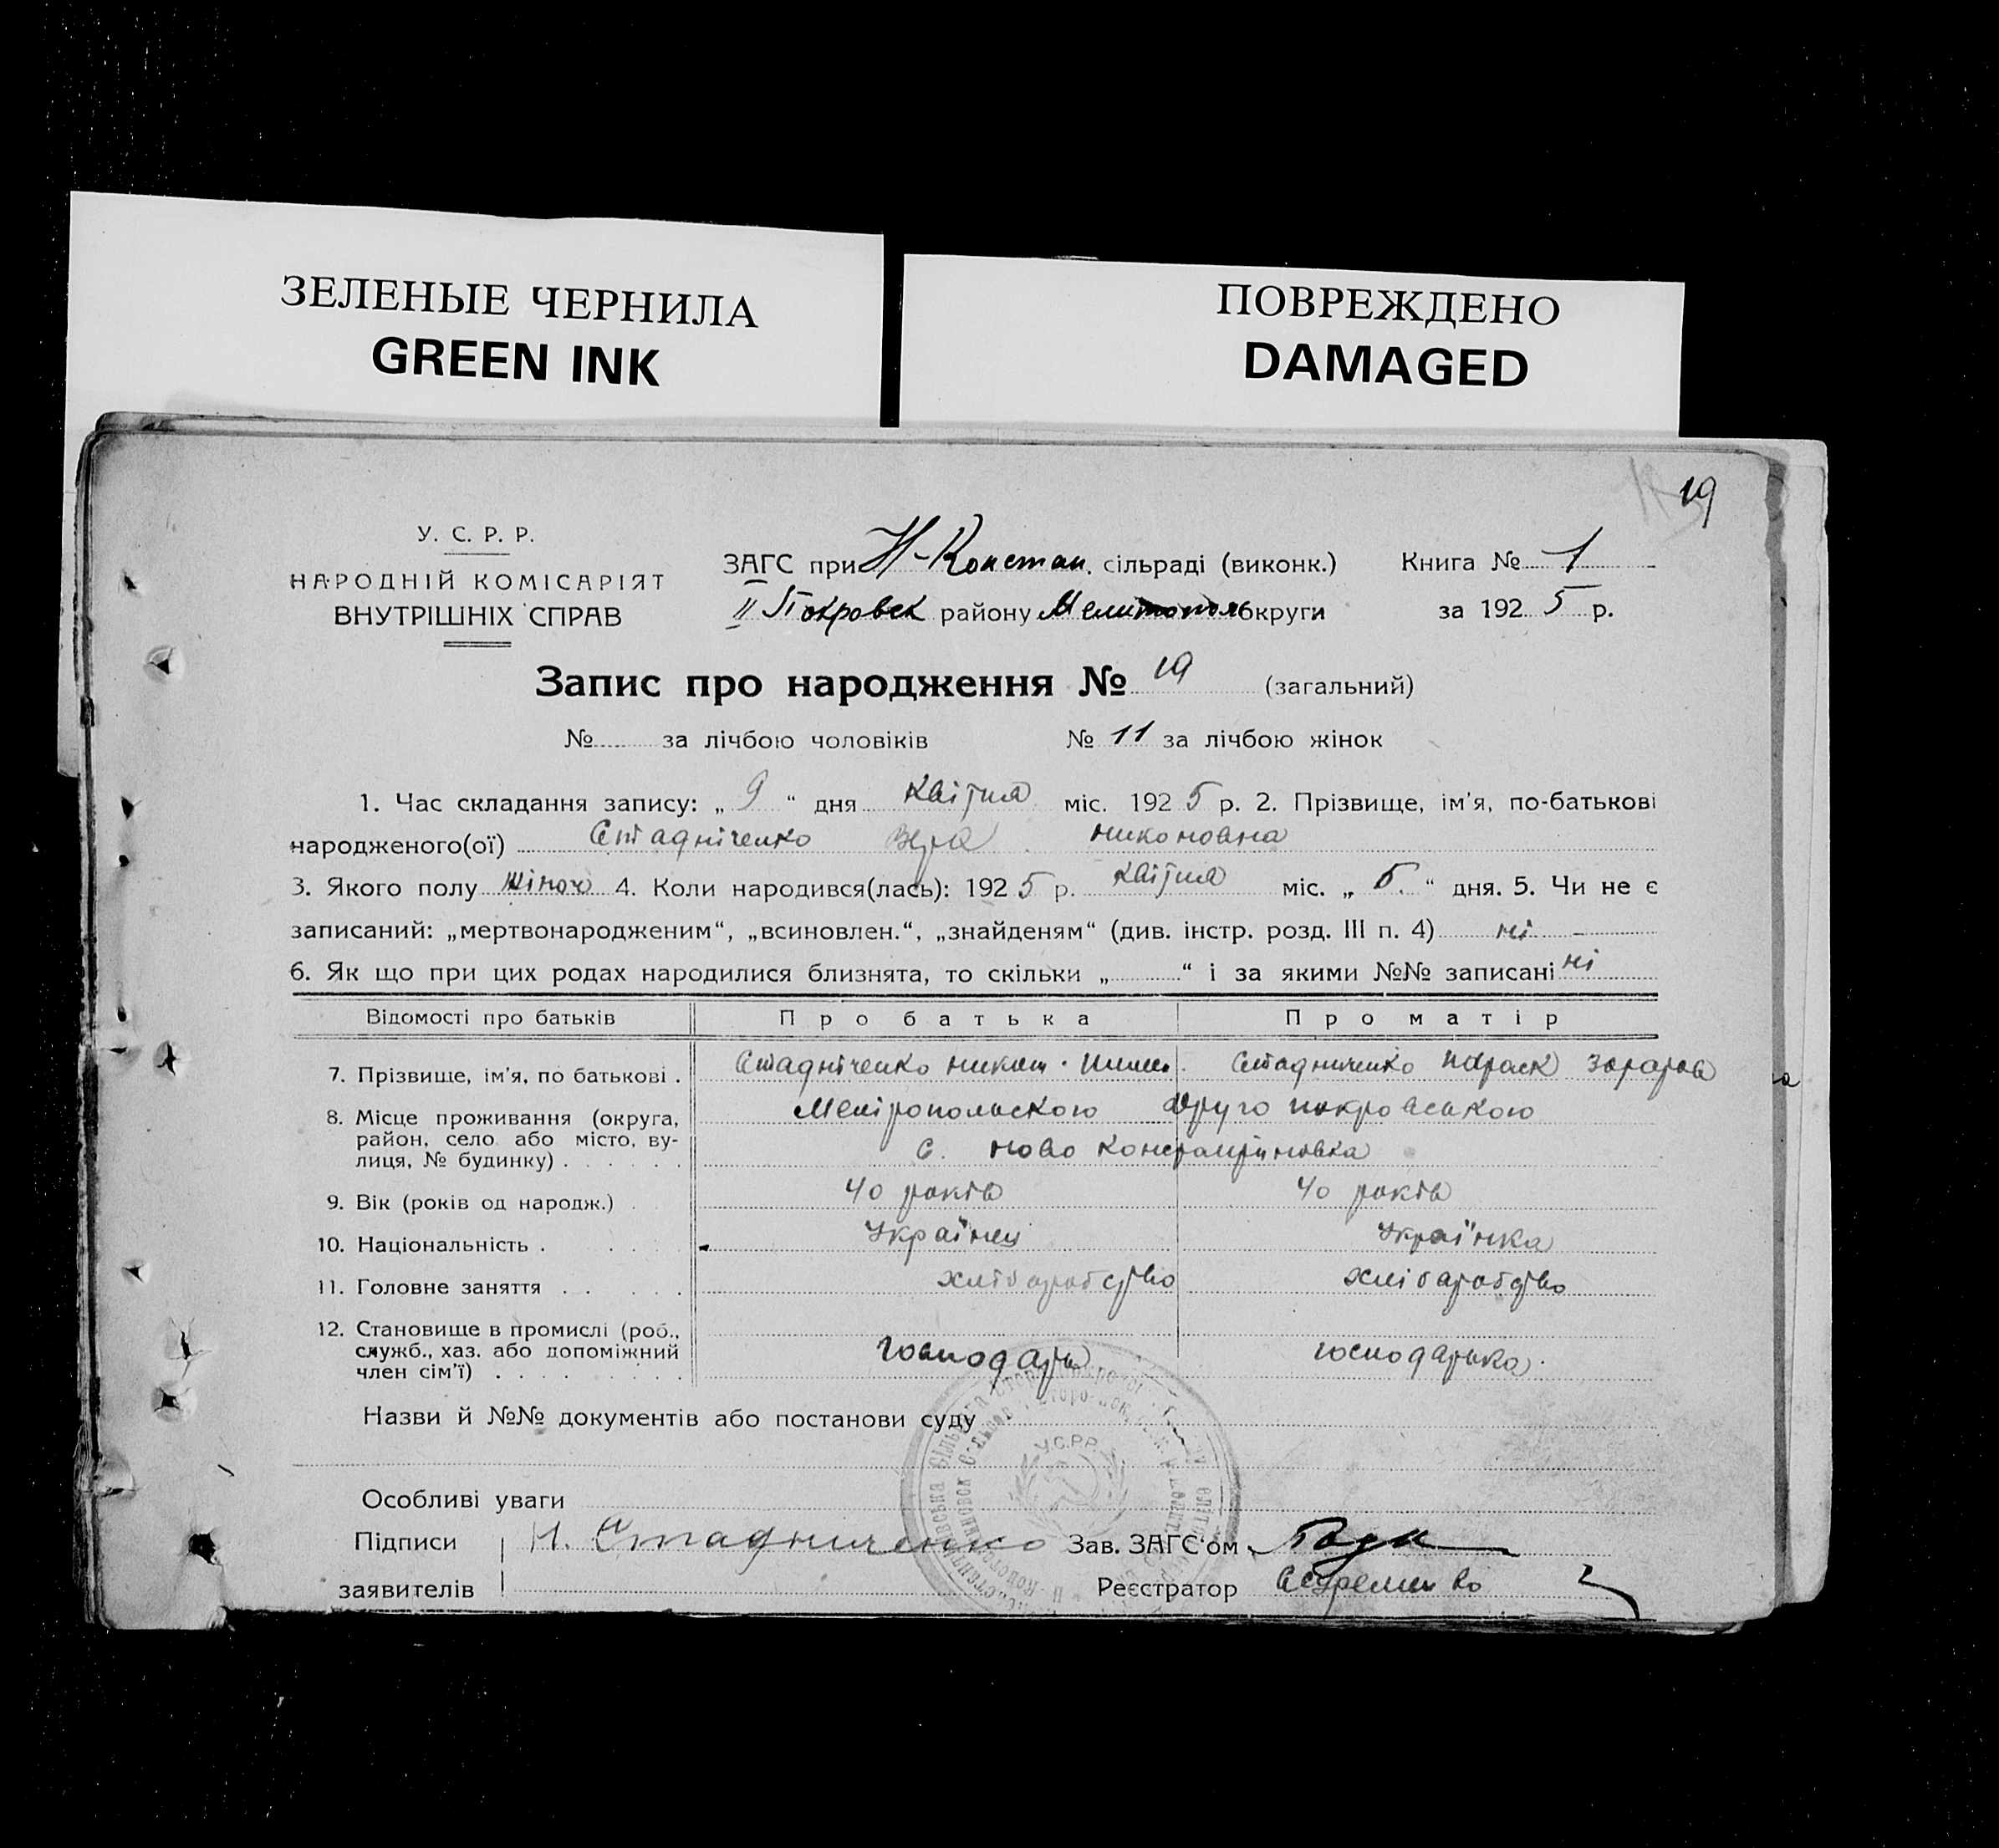 ЗЕЛЕНЫЕ ЧЕРНИЛА
GREEN INK
ПОВРЕЖДЕНО
DAMAGED
19
У. С. Р. Р.
НАРОДНІЙ КОМІСАРІЯТ
ВНУТРІШНІХ СПРАВ
ЗАГС при Н-Констан. сільраді (виконк.) Книга № 1
II Покровск району Мелитопол округи за 1925 р.
Запис про народження № 19 (загальний)
№ за лічбою чоловіків № 11 за лічбою жінок
1. Час складання запису: „ 9 “ дня квітня міс. 1925 р. 2. Прізвище, ім'я, по-батькові
народженого(ої) Стадніченко Вера Никоновна
3. Якого полу жіноч 4. Коли народився(лась): 1925 р. квітня міс. „ 5. “ дня. 5. Чи не є
записаний: „мертвонародженим“, „всиновлен.“, „знайденям“ (див. інстр. розд. III п. 4) ні -
6. Як що при цих родах народилися близнята, то скільки „ “ і за якими №№ записані ні
Відомості про батьків Про батька Про матір
7. Прізвище, ім'я, по батькові . Стадніченко Стадниченко Параск
8. Місце проживання (округа, район, село або місто, вулиця, № будинку) . Мелітопольскою Друго покровською
с. Ново Константіновка
9. Вік (років од народж.) . 40 років 40 років
10. Національність . Українец Українка
11. Головне заняття . . хлібаробство хлібаробство
12. Становище в промислі (роб., служб., хаз. або допоміжний член сім'ї) . господарь господарька.
Назви й №№ документів або постанови суду
У.С.Р.Р.
Особливі уваги
Підписи Н. Стадниченко Зав. ЗАГС'ом
заявителів Реєстратор